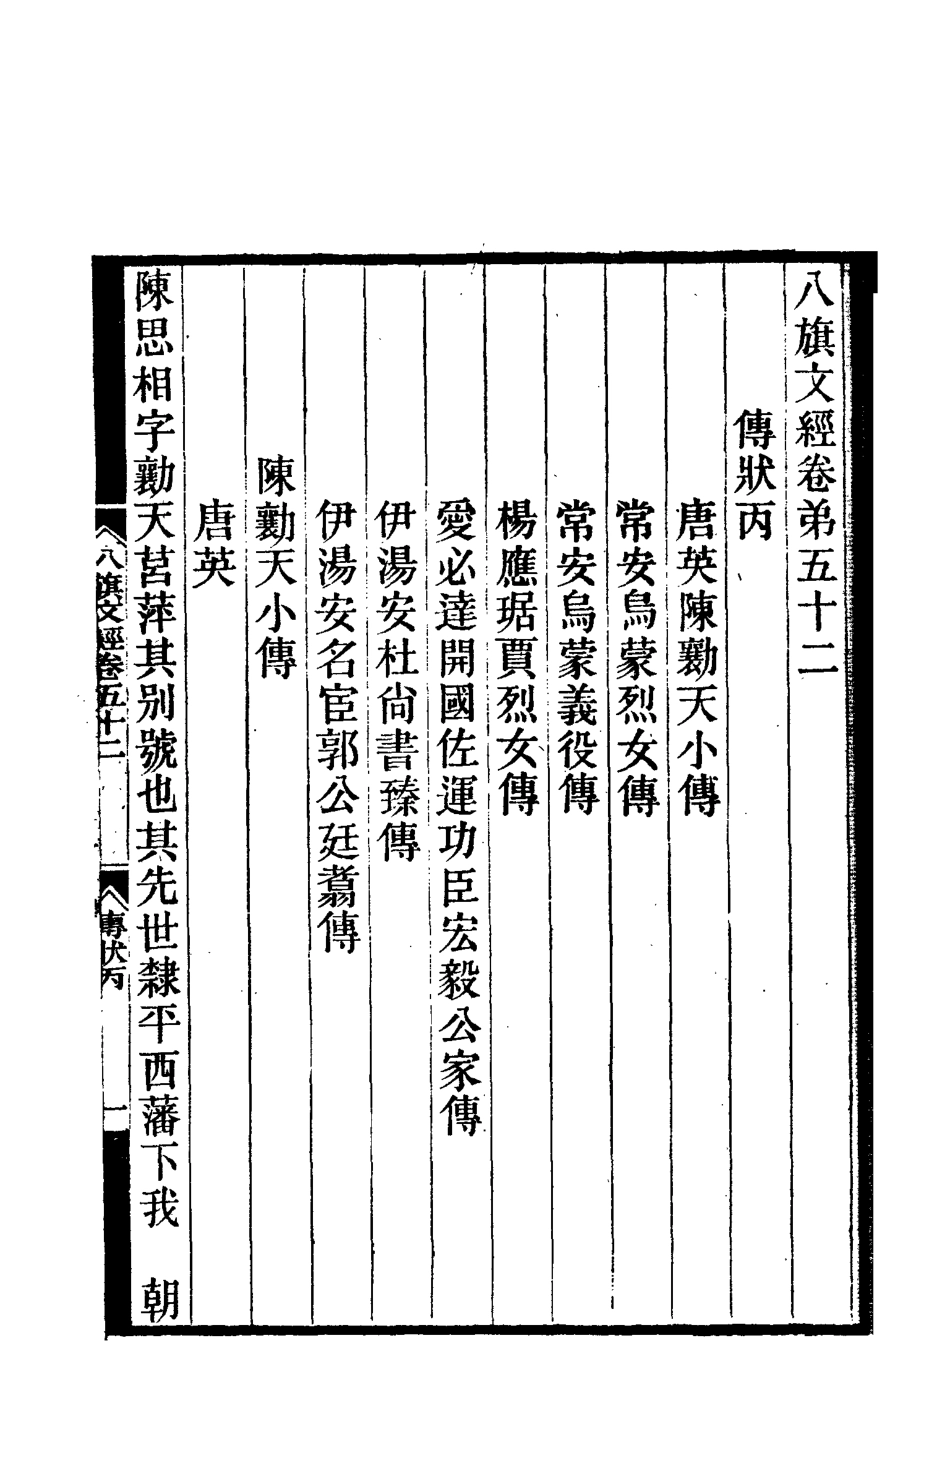 八旗文經卷弟五十二
傳狀丙
唐英陳勷天小傳
常安烏蒙烈女傳
常安烏蒙義役傳
楊應琚賈烈女傳
愛必達開國佐運功臣宏毅公家傳
伊湯安杜尙書臻傳
伊湯安名宦郭公廷翥傳
陳勷天小傳
唐英
陳思相字勷天莒萍其别號也其先世隸平西藩下我　朝
八旗文經卷五十二
傳狀丙
一